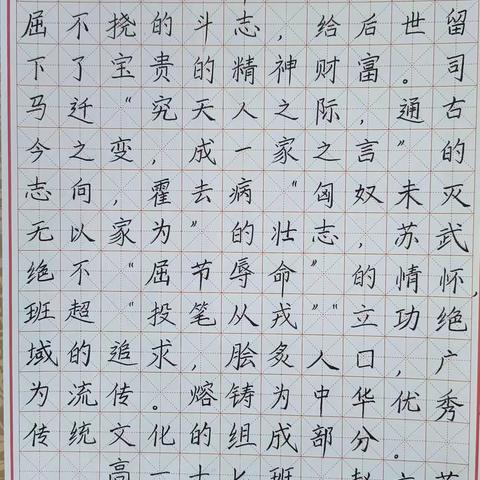 屈不挠的斗志，给后世留
下了宝贵的精神财富。司
马迁“究天人之际，通古
今之变，成一家之言”的
志向，霍去病“匈奴未灭
无以家为”的壮志，苏武
绝不“屈节辱命”的情怀，
班超“投笔从戎”“立功绝
域的追求，脍炙人口，广
为流传。熔铸为中华优秀
传统文化的组成部分。
高一 班